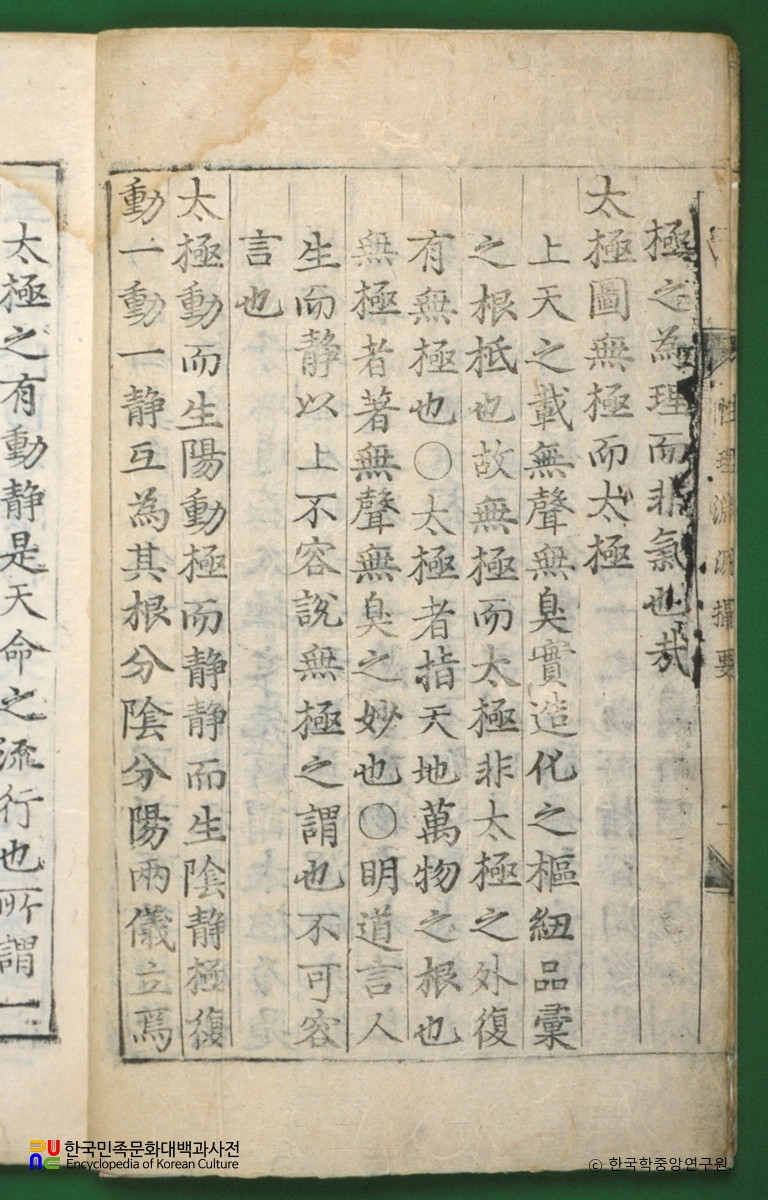 性理淵源撮要
二
極之為理而非氣也哉
太極圖無極而太極
上天之載無聲無臭實造化之樞紐品彙
之根柢也故無極而太極非太極之外復
有無極也〇太極者指天地萬物之根也
無極者著無聲無臭之妙也〇明道言人
生而静以上不容說無極之謂也不可容
言也
太極動而生陽動極而静静而生陰静極復
動一動一静互為其根分陰分陽兩儀立焉
太極之有動静是天命之流行也所謂一
한국민족문화대백과사전
Encyclopedia of Korean Culture
© 한국학중앙연구원